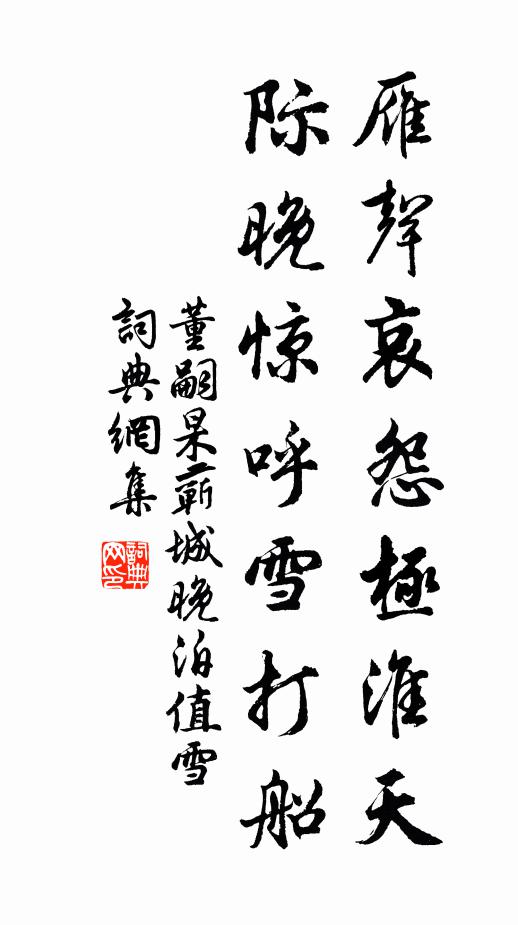 雁聲哀怨極淮天
际晚惊呼雪打船
董嗣杲蘄城晚泊值雪
詞典網集
詞典網印